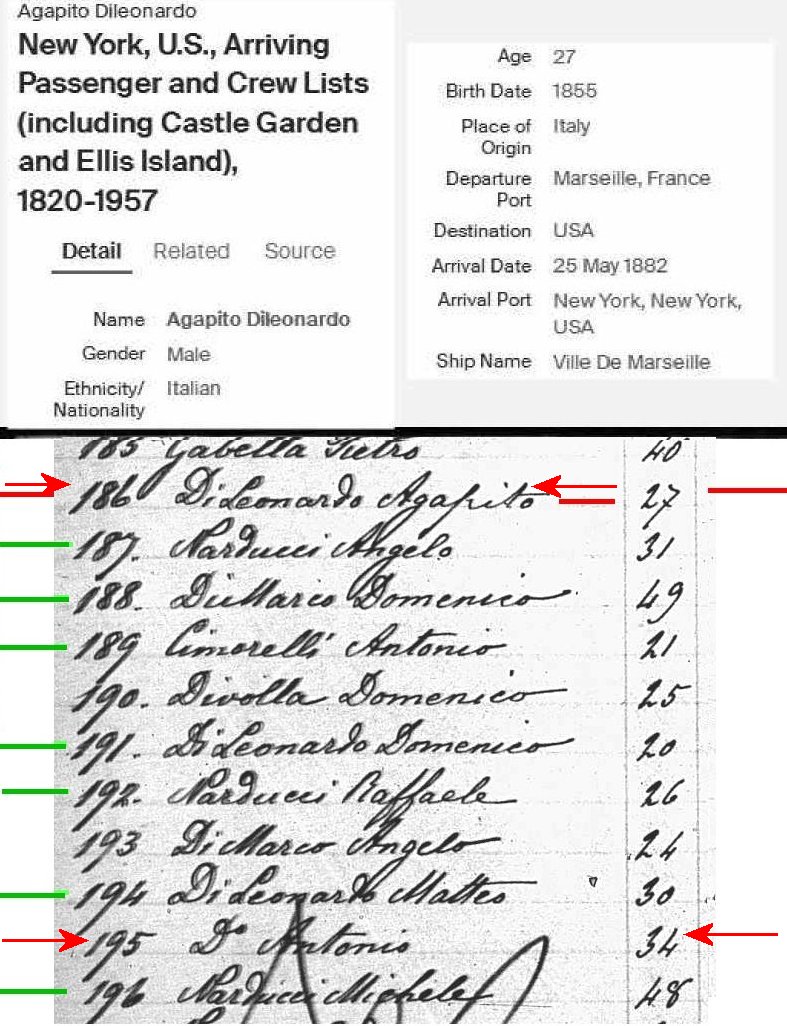 Agapito Dileonardo
New York, U.S., Arriving
Passenger and Crew Lists
(including Castle Garden
and Ellis Island),
1820-1957
Detail Related Source
Name Agapito Dileonardo
Gender Male
Ethnicity/
Nationality Italian
Age 27
Birth Date 1855
Place of
Origin Italy
Departure
Port Marseille, France
Destination USA
Arrival Date 25 May 1882
Arrival Port New York, New York,
USA
Ship Name Ville De Marseille
185 Gabella Pietro 40
186 DiLeonardo Agapito 27
187. Narducci Angelo 31
188. DiMarco Domenico 49
189 Cimorelli Antonio 21
190. Divolla Domenico 25
191. DiLeonardo Domenico 20
192. Narducci Raffaele 26
193 DiMarco Angelo 24
194 DiLeonardo Matteo 30
195 Do Antonio 34
196 Narducci Michele 48